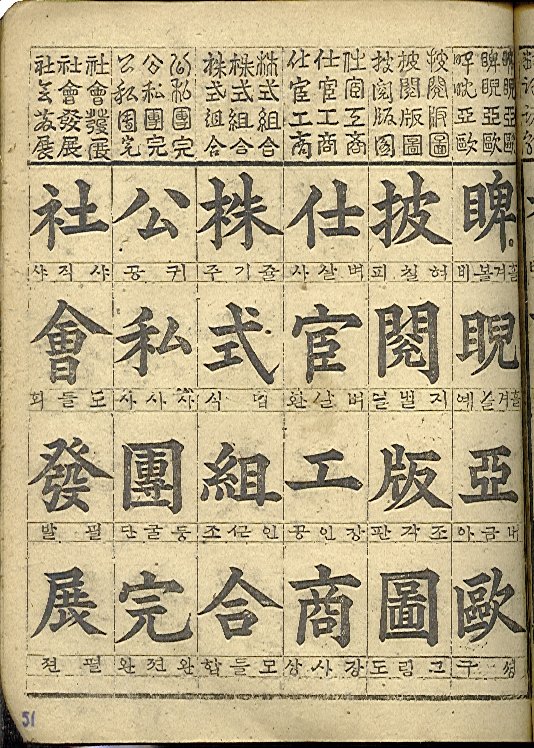 睥睨亞歐
睥睨亞歐
睥睨亞歐
披閱版圖
披閱版圖
披閱版圖
仕宦工商
仕宦工商
仕宦工商
株式組合
株式組合
株式組合
公私團完
公私團完
公私團完
社會發展
社會發展
社會發展
睥
흘겨볼비
睨
흘겨볼예
亞
버금아
歐
구
披
혀칠피
閱
지벌열
版
조각판
圖
그림도
仕
벼살사
宦
벼살환
工
장인공
商
장사상
株
줄기주
式
법식
組
인끈조
合
모들합
公
귀공
私
사사사
團
둥굴단
完
완젼완
社
샤직샤
會
모들회
發
필발
展
펼젼
51